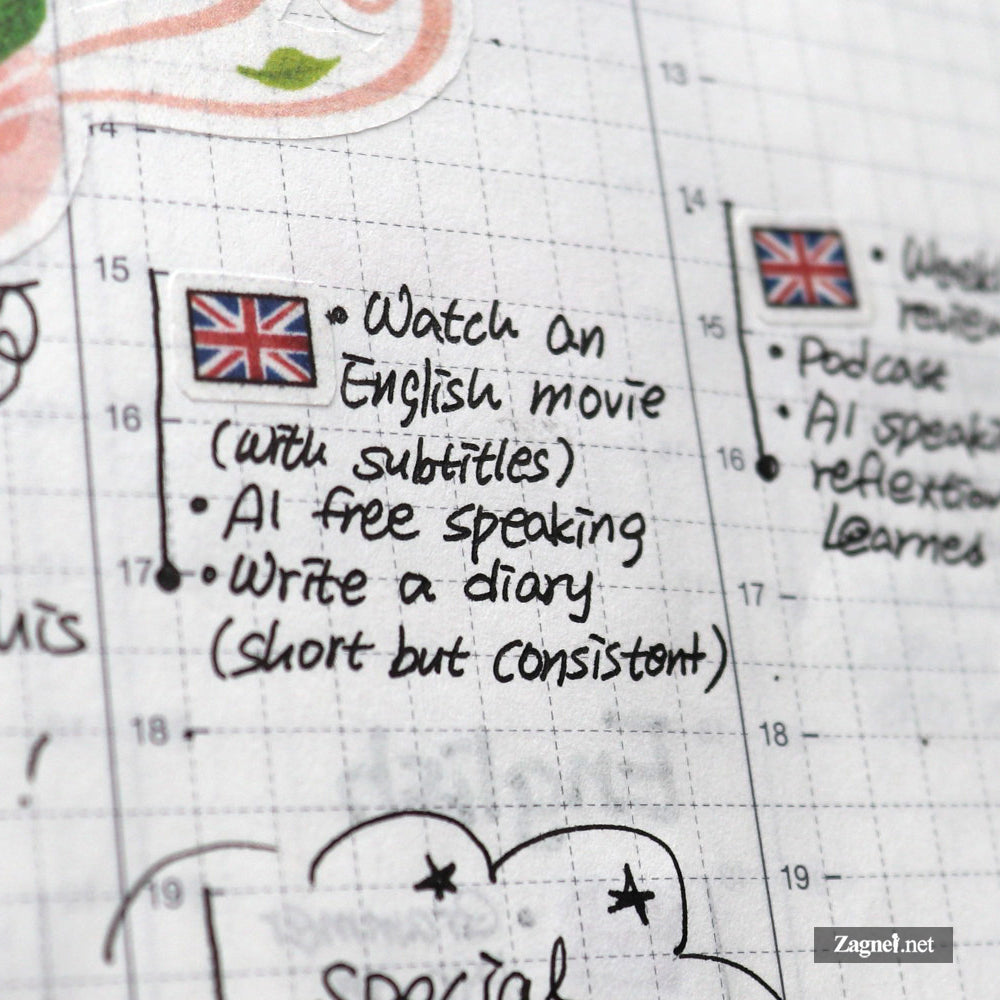 14
15
16
17
18
19
• Watch an
English movie
(with subtitles)
• AI free speaking
• Write a diary
(short but consistent)
special
13
14
15
16
17
18
19
• Podcast
• AI
reflextion
Learnes
!
Zagnei.net